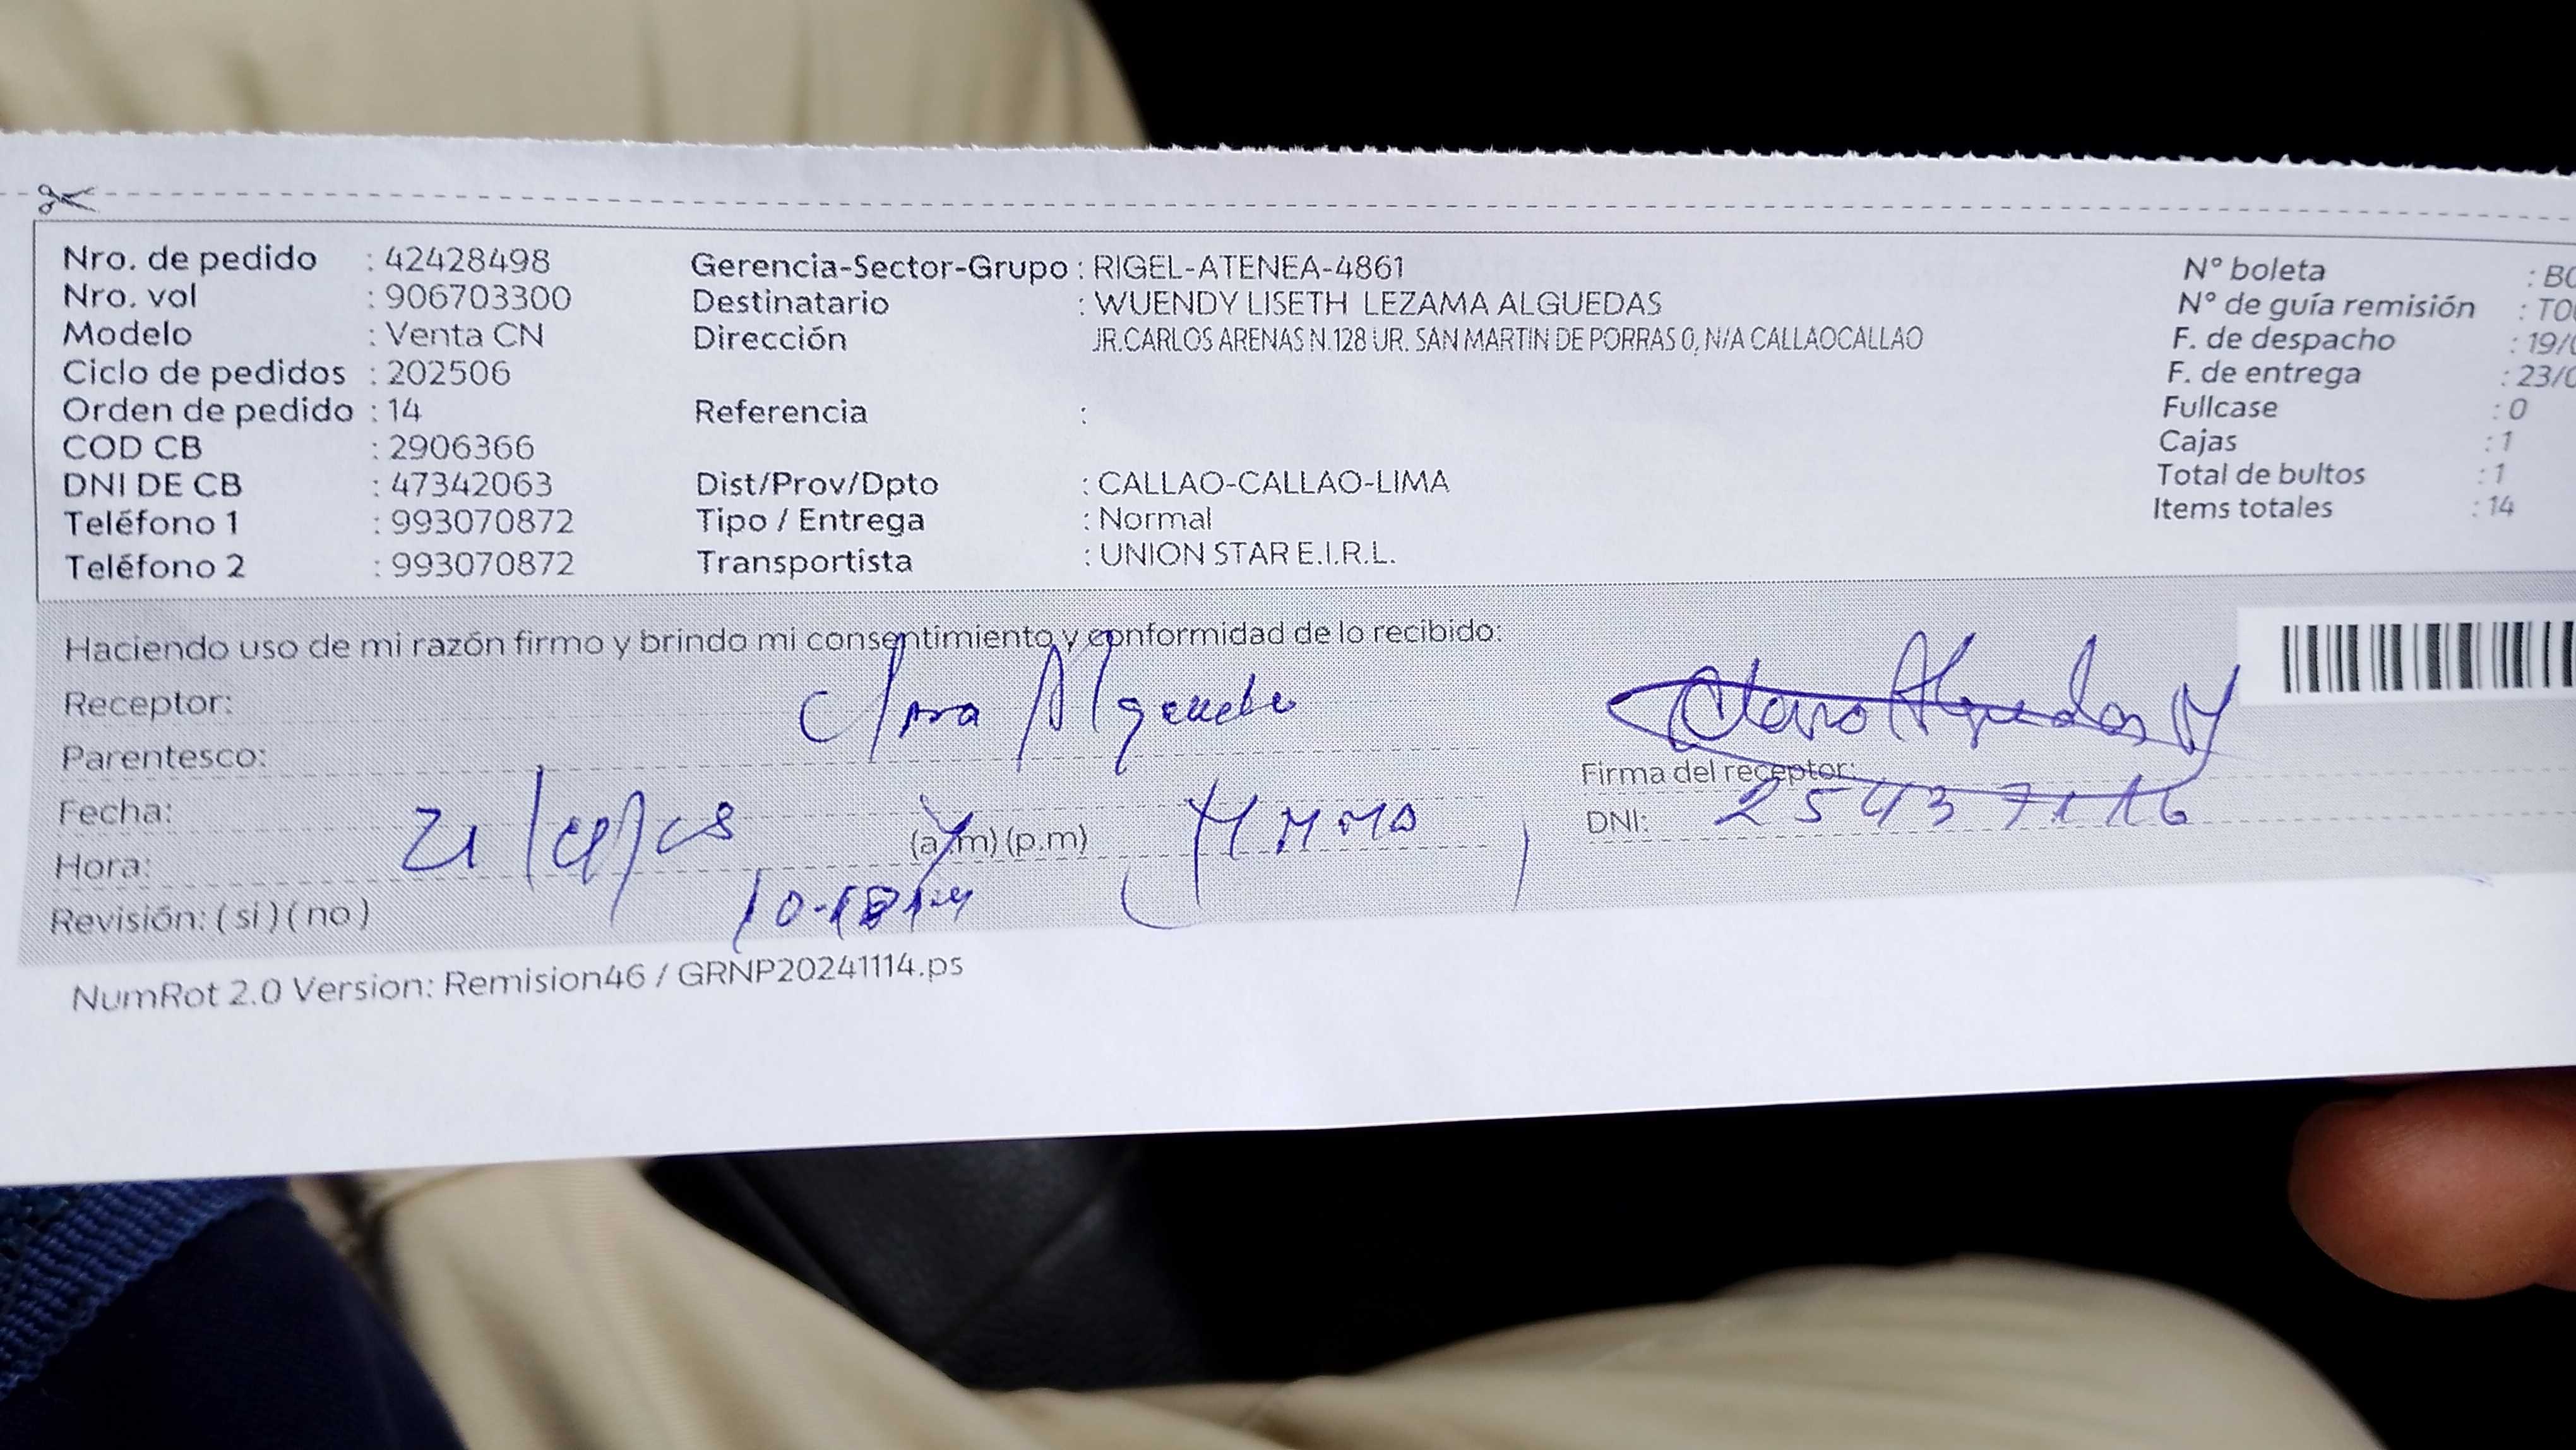 Nro. de pedido : 42428498
Nro. vol : 906703300
Modelo : Venta CN
Ciclo de pedidos : 202506
Orden de pedido : 14
COD CB : 2906366
DNI DE CB : 47342063
Teléfono 1 : 993070872
Teléfono 2 : 993070872
Gerencia-Sector-Grupo : RIGEL-ATENEA-4861
Destinatario : WUENDY LISETH LEZAMA ALGUEDAS
Dirección JR.CARLOS ARENAS N.128 UR. SAN MARTIN DE PORRAS 0, N/A CALLAOCALLAO
Referencia :
Dist/Prov/Dpto : CALLAO-CALLAO-LIMA
Tipo / Entrega : Normal
Transportista : UNION STAR E.I.R.L.
N° boleta :
N° de guía remisión :
F. de despacho : 19/
F. de entrega : 23/
Fullcase : 0
Cajas : 1
Total de bultos : 1
Items totales : 14
Haciendo uso de mi razón firmo y brindo mi consentimiento y conformidad de lo recibido:
Receptor: Clara
Parentesco:
Fecha:
Hora: (a.m) (p.m)
Revisión: ( si ) ( no )
Firma del receptor:
DNI:
NumRot 2.0 Version: Remision46 / GRNP20241114.ps